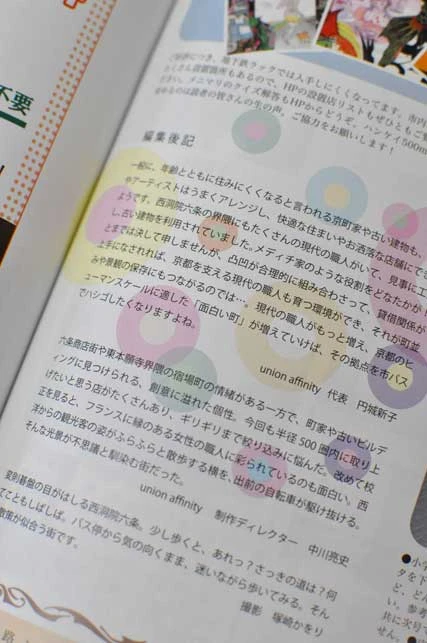 不要
ご好評につき、地下鉄ラックでは入手しにくくなってます。市内
たくさん設置箇所もあるので、HPの設置店リストもぜひともご覧
ださい。メニマリのクイズ解答もHPからどうぞ。ハンケイ500m
めるのは読者の皆さんの生の声。ご協力をお願いします！
編集後記
一般に、年齢とともに住みにくくなると言われる京町家や古い建物も、
やアーティストはうまくアレンジし、快適な住まいやお洒落な店舗にでき
ようです。西洞院六条の界隈にもたくさんの現代の職人がいて、見事に工
し、古い建物を利用されていました。メディチ家のような役割をどなたかが！
とまでは決して申しませんが、凸凹が合理的に組み合わさって、貸借関係が
上手になされれば、京都を支える現代の職人も育つ環境ができ、それが町並
みや景観の保存にもつながるのでは…。現代の職人がもっと増え、京都のヒ
ューマンスケールに適した「面白い町」が増えていけば、その拠点を市バス
でハシゴしたくなりますよね。
union affinity 代表 円城新子
六条商店街や東本願寺界隈の宿場町の情緒がある一方で、町家や古いビルデ
ィングに見つけられる、創意に溢れた個性。今回も半径500圏内に取り上
げたいと思う店がたくさんあり、ギリギリまで絞り込みに悩んだ。改めて校
正を見ると、フランスに縁のある女性の職人に彩られているのも面白い。西
洋からの観光客の姿がふらふらと散歩する横を、出前の自転車が駆け抜ける。
そんな光景が不思議と馴染む街だった。
union affinity 制作ディレクター 中川亮史
変則碁盤の目がはしる西洞院六条。少し歩くと、あれっ？さっきの道は？何
てこともしばしば。バス停から気の向くまま、迷いながら歩いてみる。そん
散策が似合う街です。
撮影 塚崎かをり